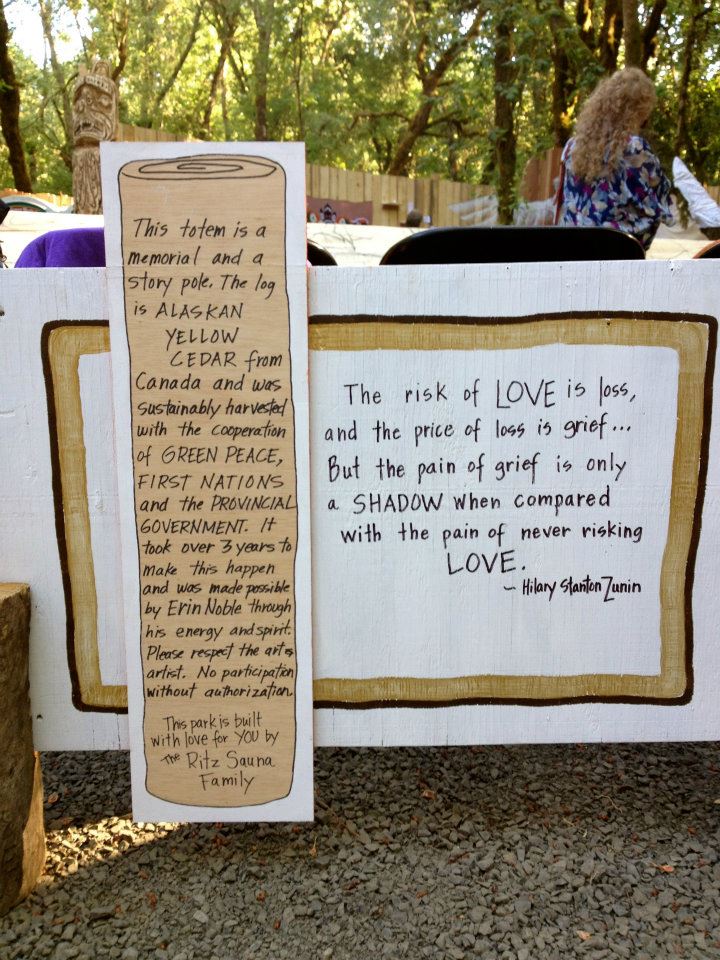 This totem is a
memorial and a
story pole. The log
is ALASKAN
YELLOW
CEDAR from
Canada and was
sustainably harvested
with the cooperation
of GREEN PEACE,
FIRST NATIONS
and the PROVINCIAL
GOVERNMENT. It
took over 3 years to
make this happen
and was made possible
by Erin Noble through
his energy and spirit.
Please respect the art &
artist. No participation
without authorization.
This park is built
with love for YOU by
The Ritz Sauna
Family
The risk of LOVE is loss,
and the price of loss is grief...
But the pain of grief is only
a SHADOW when compared
with the pain of never risking
LOVE.
- Hilary Stanton Zunin